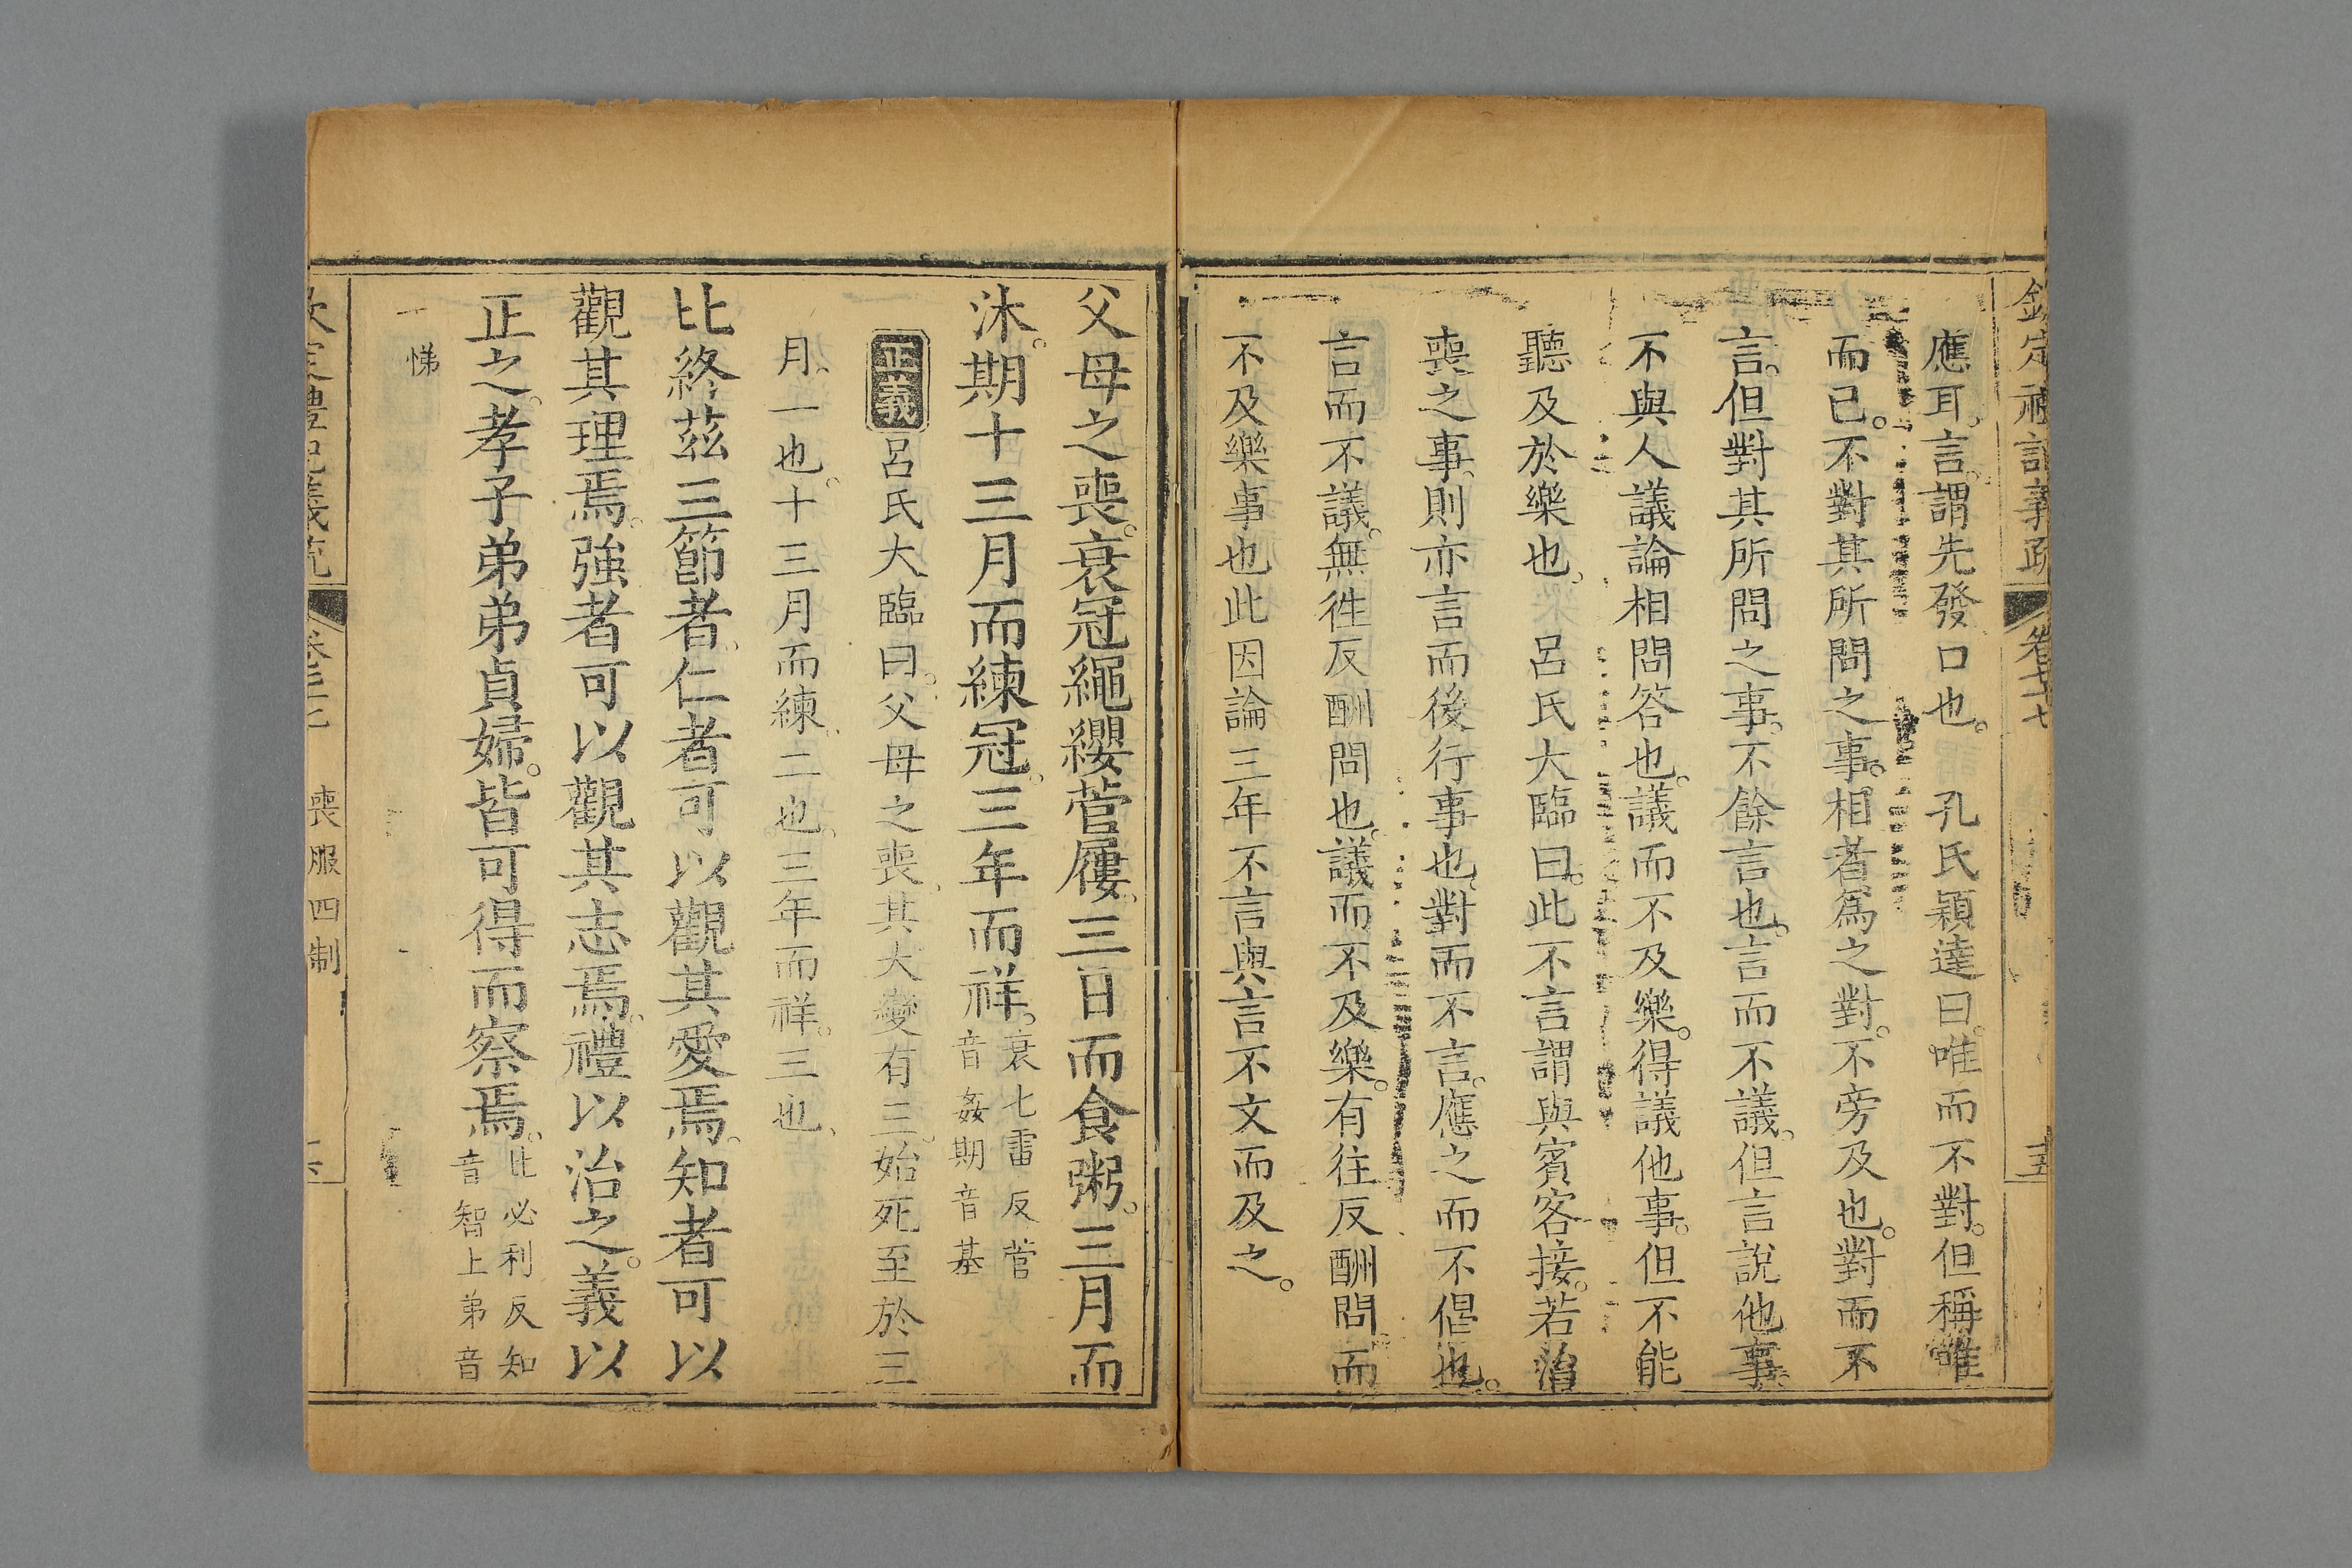 欽定禮記義疏 卷七十七 十五
應耳。言。謂先發口也。 孔氏穎達曰。唯而不對。但稱唯
而已。不對其所問之事。相者爲之對。不旁及也。對而不
言。但對其所問之事。不餘言也。言而不議。但言說他事。
不與人議論相問答也。議而不及樂。得議他事。但不能
聽及於樂也。 呂氏大臨曰。此不言謂與賓客接。若治
喪之事。則亦言而後行事也。對而不言。應之而不倡也。
言而不議。無徃反酬問也。議而不及樂。有往反酬問。而
不及樂事也此因論三年不言與言不文而及之。
父母之喪。衰冠繩纓菅屨。三日而食粥。三月而
沐。期十三月而練冠。三年而祥。衰七雷反菅
音姦期音基
正義 呂氏大臨曰。父母之喪。其大變有三。始死至於三
月。一也。十三月而練。二也。三年而祥。三也。
比終茲三節者。仁者可以觀其愛焉。知者可以
觀其理焉。強者可以觀其志焉。禮以治之。義以
正之。孝子弟弟貞婦。皆可得而察焉。比必利反知
音智上弟音
悌
欽定禮記義疏 卷七十七 喪服四制